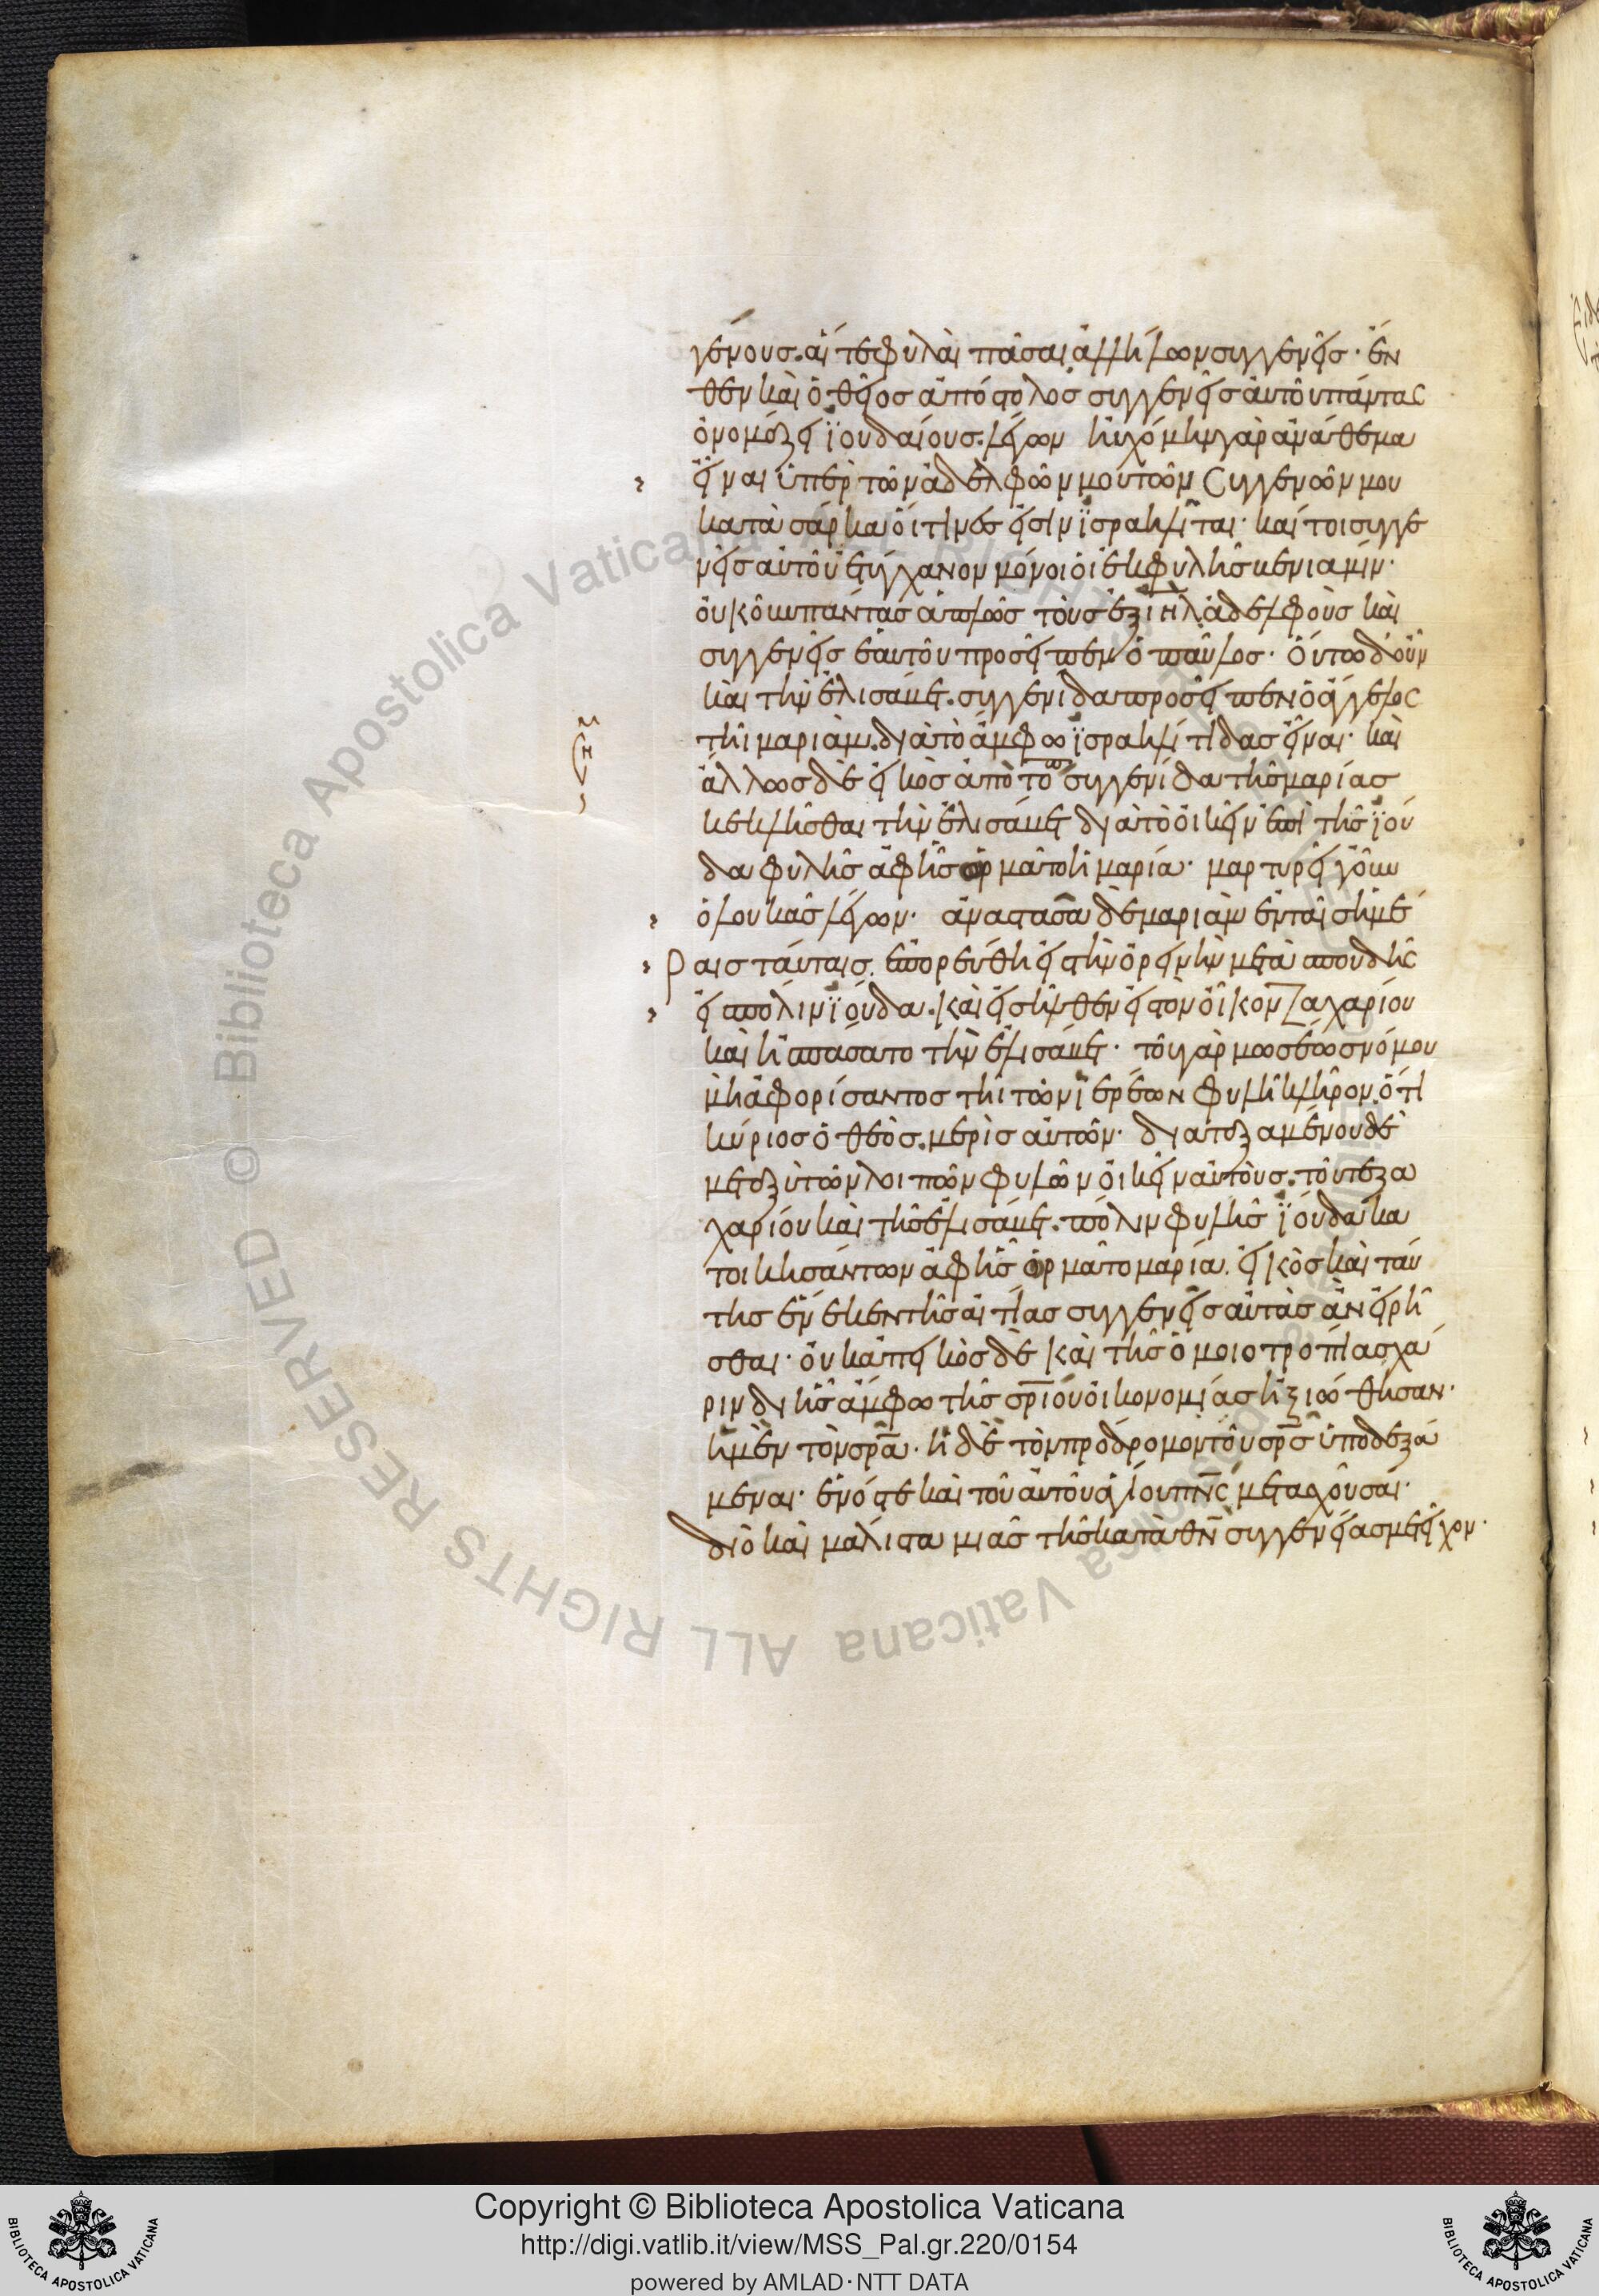 γένους. αἵ τε φυλαὶ πᾶσαι ἀλλήλων συγγενεῖς· ἔν
θεν καὶ ὁ θεῖος ἀπόστολος συγγενεῖς αὐτοῦ πάντας
ὀνομάζει ϊουδαίους. λέγων ηὐχόμην γὰρ ἀνάθεμα
εἶναι ὑπὲρ τῶν ἀδελφῶν μου τῶν συγγενῶν μου
κατὰ σάρκα οἵτινές εἰσιν ϊσραηλῖται· καίτοι συγγε
νεῖς αὐτοῦ ἐτύγχανον μόνοι οἱ ἐκ φυλῆς βενιαμίν·
οὐκοῦν πάντας ἁπλῶς τοὺς ἐξ ιηλ ἀδελφοὺς καὶ
συγγενεῖς ἑαυτοῦ προσεῖπεν ὁ παῦλος· οὕτω δ' οὖν
καὶ τὴν ἐλισάβετ. συγγενίδα προσεῖπεν ὁ ἄγγελος
τῆι μαριὰμ. διὰ τὸ ἄμφω ϊσραηλίτιδας εἶναι· καὶ
ἄλλως δὲ εἰκὸς ἀπὸ τοῦ συγγενίδα τῆς μαρίας
κεκλῆσθαι τὴν ἐλισάβετ διὰ τὸ οἰκεῖν ἐπὶ τῆς ϊού
δα φυλῆς ἀφ ἧς ὁρμᾶτο ἡ μαρία· μαρτυρεῖ γοῦν
ὁ λουκᾶς λέγων· ἀναστᾶσα δὲ μαριὰμ ἐν ταῖς ἡμέ
ραις ταύταις. ἐπορεύθη εἰς τὴν ὀρεινὴν μετὰ σπουδῆς
εἰς πόλιν ϊούδα. καὶ εἰσῆλθεν εἰς τὸν οἶκον ζαχαρίου
καὶ ἠσπάσατο τὴν ἐλισάβετ· τοῦ γὰρ μωσέως νόμου
μὴ ἀφορίσαντος τῆι τῶν ϊερέων φυλῆ κλῆρον. ὅτι
κύριος ὁ θεὸς. μερὶς αὐτῶν· διαταξαμένου δὲ
μεταξὺ τῶν λοιπῶν φυλῶν οἰκεῖν αὐτοὺς. τοῦ τε ζα
χαρίου καὶ τῆς ἐλισάβετ. πόλιν φυλῆς ϊούδα κα
τοικησάντων ἀφ ἧς ὁρμᾶτο μαρία. εἰκὸς καὶ ταύ
της ἕνεκεν τῆς αἰτίας συγγενεῖς αὐτὰς ἀνειρῆ
σθαι· οὐκ ἀπεικὸς δὲ καὶ τῆς ὁμοιοτροπίας χά
ριν δι ἧς ἄμφω τῆς σρίου οἰκονομίας ἠξιώθησαν·
ἡ μὲν τὸν σρα· ἡ δὲ τὸν πρόδρομον τοῦ σρς ὑποδεξά
μεναι· ἑνός τε καὶ τοῦ αὐτοῦ ἁγίου πνς μετασχοῦσαι·
διὸ καὶ μάλιστα μιᾶς τῆς κατὰ θν συγγενείας μετεῖχον·